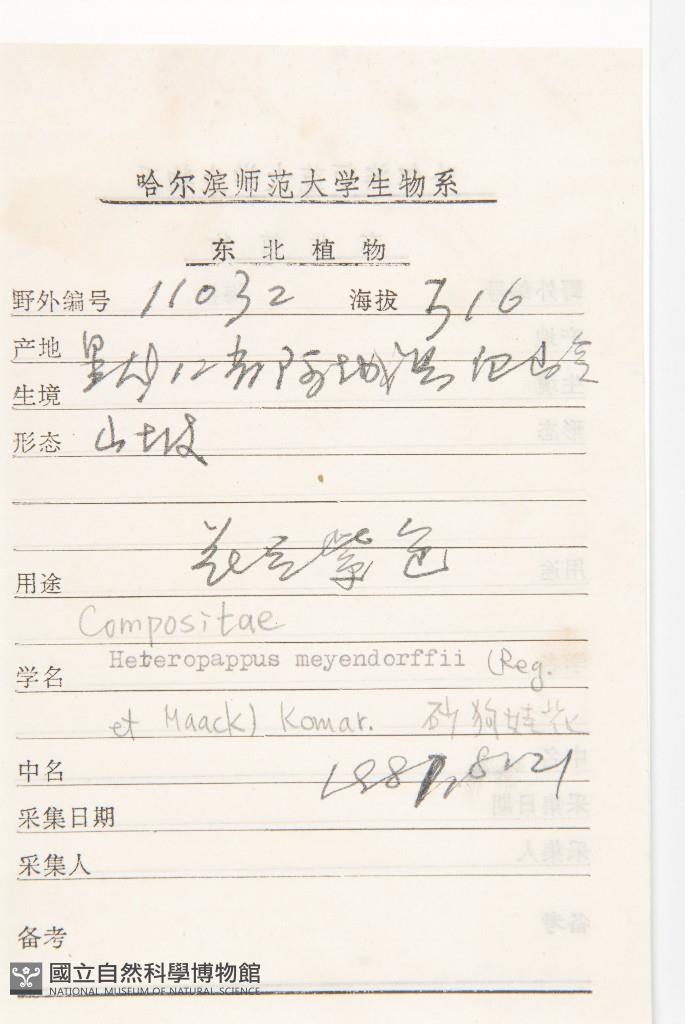 哈尔滨师范大学生物系
东北植物
野外编号 11032 海拔 316
产地
生境
形态 山坡
紫色
用途
Compositae
学名 Heteropappus meyendorffii (Reg.
et Maack) Komar. 砂狗娃花
中名
采集日期
采集人
备考
國立自然科學博物館
NATIONAL MUSEUM OF NATURAL SCIENCE